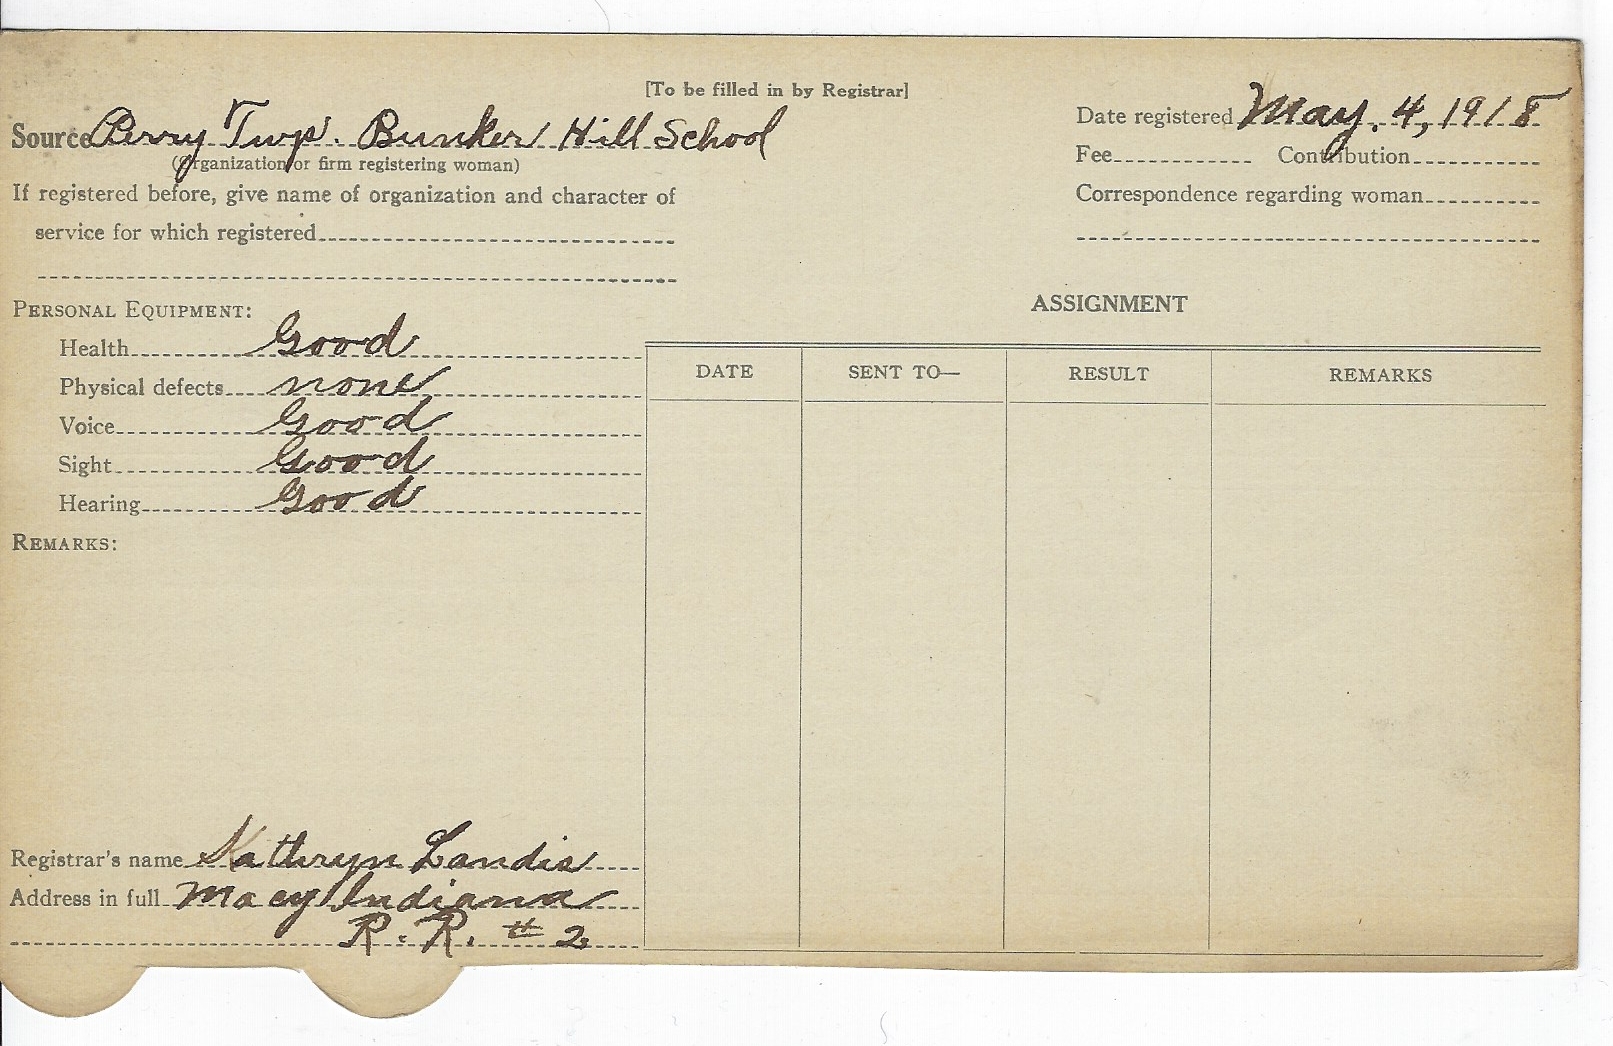 [To be filled in by Registrar]
Source Perry Twp. Bunker Hill School
(Organization or firm registering woman)
If registered before, give name of organization and character of
service for which registered
Date registered May. 4, 1918
Fee Contribution
Correspondence regarding woman
PERSONAL EQUIPMENT:
Health Good
Physical defects none
Voice Good
Sight Good
Hearing Good
REMARKS:
ASSIGNMENT
DATE SENT TO— RESULT REMARKS
Registrar's name Kathryn Landis
Address in full Macy Indiana
R. R. # 2